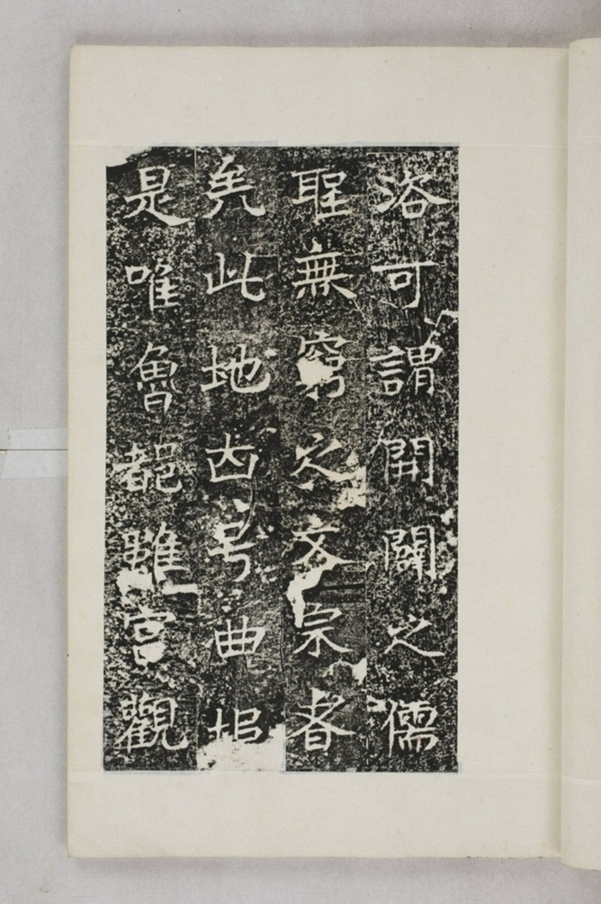 洛可謂開闢之儒
聖無窮之文宗者
矣此地古号曲埠
是唯魯都雖宮觀